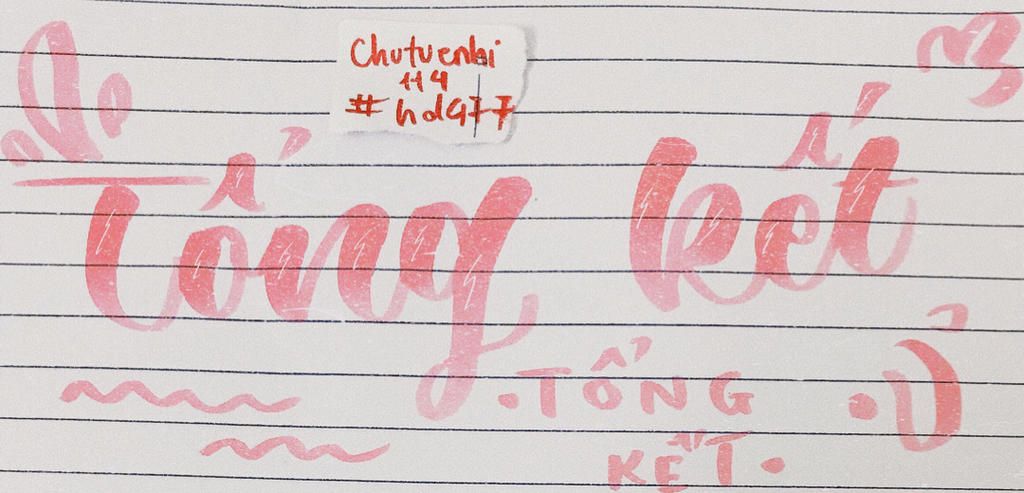 Chutuenhi
114
#hd477
Tổng kết
• TỔNG
KẾT •